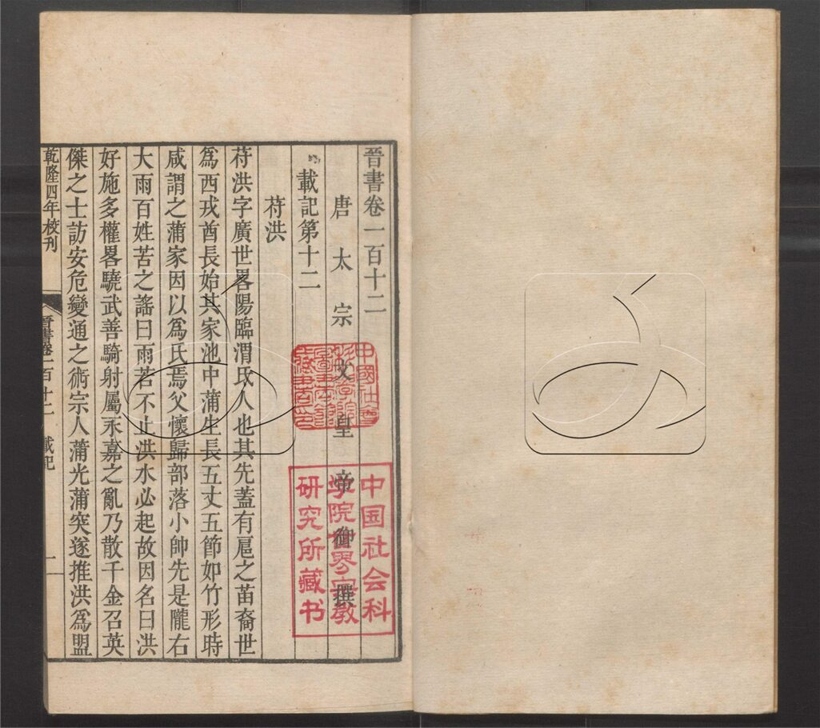 晉書卷一百十二
唐太宗文皇帝御撰
載記第十二
苻洪
苻洪字廣世畧陽臨渭氐人也其先蓋有扈之苗裔世
爲西戎酋長始其家池中蒲生長五丈五節如竹形時
咸謂之蒲家因以爲氏焉父懷歸部落小帥先是隴右
大雨百姓苦之謠曰雨若不止洪水必起故因名曰洪
好施多權畧驍武善騎射屬永嘉之亂乃散千金召英
傑之士訪安危變通之術宗人蒲光蒲突遂推洪爲盟
乾隆四年校刊
晉書卷一百十二 載記 一
中国社会科
学院世界宗教
研究所藏书